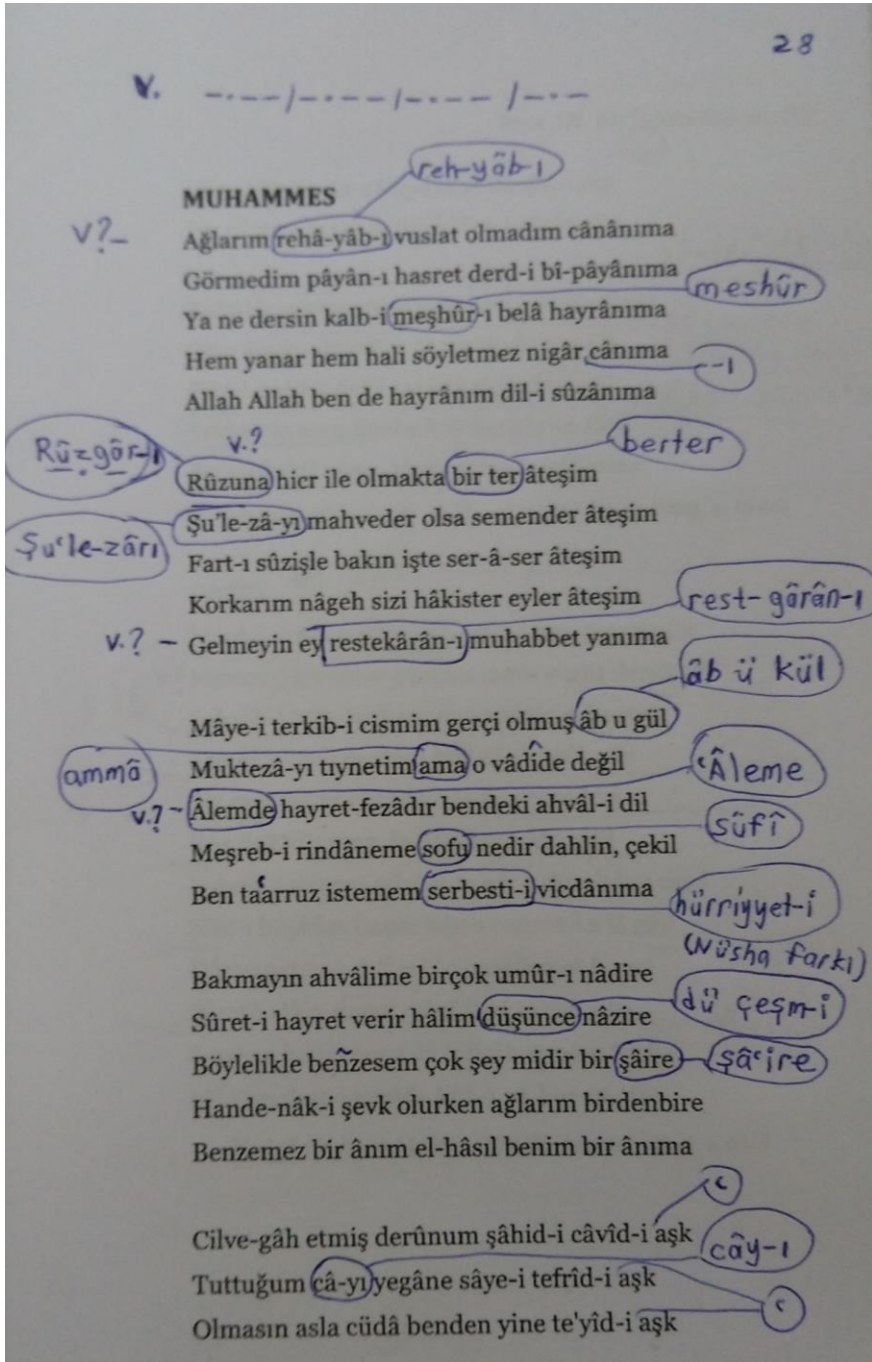 28
V. -.--/-.---/-.--- /-.-
reh-yâb-ı
MUHAMMES
V?- Ağlarım rehâ-yâb-ı vuslat olmadım cânânıma
Görmedim pâyân-ı hasret derd-i bî-pâyânıma
meshûr
Ya ne dersin kalb-i meşhûr-ı belâ hayrânıma
Hem yanar hem hali söyletmez nigâr cânıma -ı
Allah Allah ben de hayrânım dil-i sûzânıma
Rûzgâr-ı v.? berter
Rûzuna hicr ile olmakta bir ter âteşim
Şu'le-zâ-yı mahveder olsa semender âteşim
Şuʿle-zârı
Fart-ı sûzişle bakın işte ser-â-ser âteşim
Korkarım nâgeh sizi hâkister eyler âteşim rest-gârân-ı
v.? - Gelmeyin ey restekârân-ı muhabbet yanıma
âb ü kül
Mâye-i terkib-i cismim gerçi olmuş âb u gül
ammâ Muktezâ-yı tıynetim ama o vâdide değil ʿÂleme
v.? - Âlemde hayret-fezâdır bendeki ahvâl-i dil
sûfî
Meşreb-i rindâneme sofu nedir dahlin, çekil
Ben taarruz istemem serbesti-i vicdânıma hürriyyet-i
(Nüsha farkı)
Bakmayın ahvâlime birçok umûr-ı nâdire
dü çeşm-i
Sûret-i hayret verir hâlim düşünce nâzire
Böylelikle benzesem çok şey midir bir şâire şâʿire
Hande-nâk-i şevk olurken ağlarım birdenbire
Benzemez bir ânım el-hâsıl benim bir ânıma
ʿ
Cilve-gâh etmiş derûnum şâhid-i câvîd-i aşk
câ​y-ı
Tuttuğum câ-yı yegâne sâye-i tefrîd-i aşk
ʿ
Olmasın asla cüdâ benden yine te'yîd-i aşk